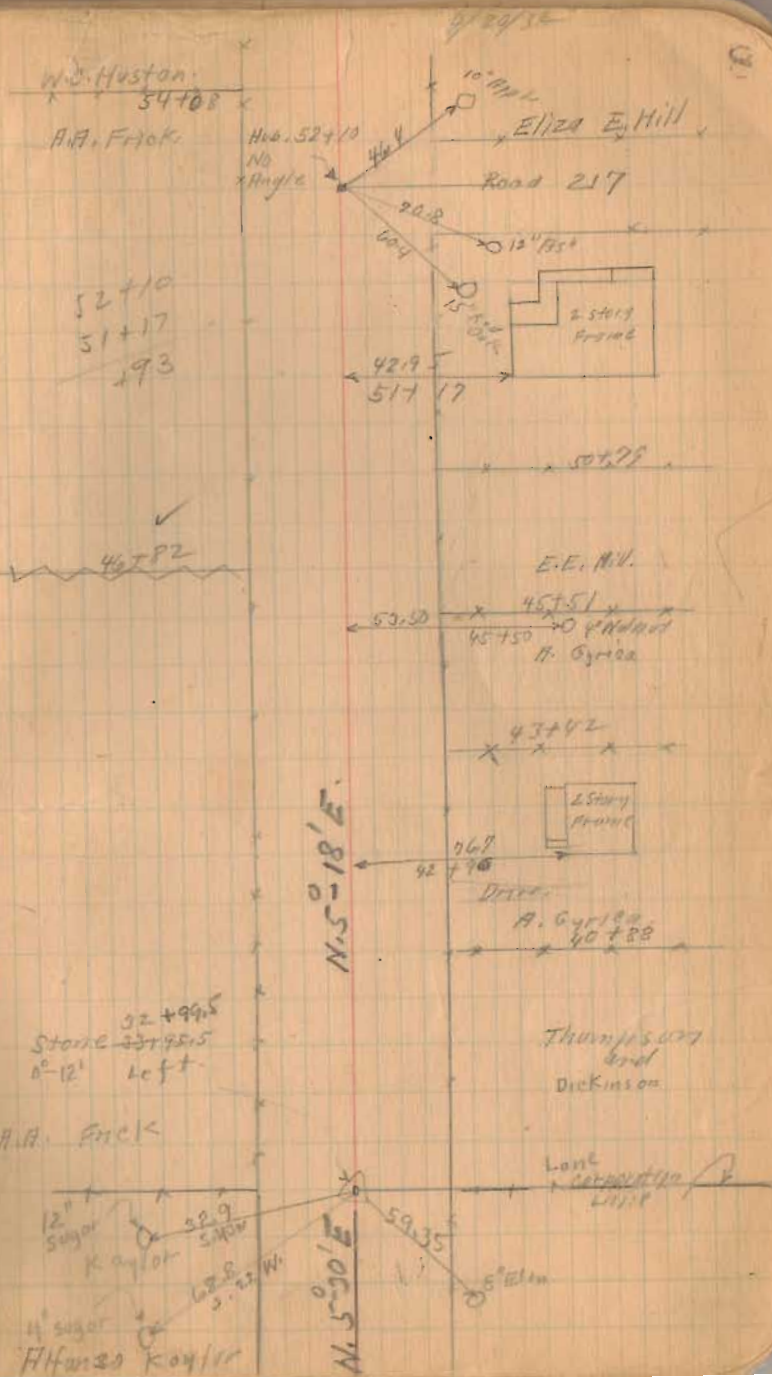 9/29/32
W.C. Huston.
54+08
A.A. Frick.
Hub. 52+10
No
Angle
46.4
Eliza E. Hill
Road 217
70.8
12" Ash
60.4
15" Red Oak
2 Story
Frame
52+10
51+17
+93
42.95
51+17
50+79
46+82
E.E. Hill.
45+51
53.50
45+50
4" Walnut
A. Gyrica
43+42
2 Story
Frame
76.7
42+96
Drive.
A. Gyrica.
40+88
N.5°-18' E.
32+99.5
Stone 33+95.5
0°-12' Left.
Thumpson
and
Dickinson
A.A. Frick
Lane
Corporation
Line
12"
Sugar
32.9
Kaylor
59.35
68.8
W.
8" Elm
N.5°-30' E
4" sugar
Alfonso Kaylor